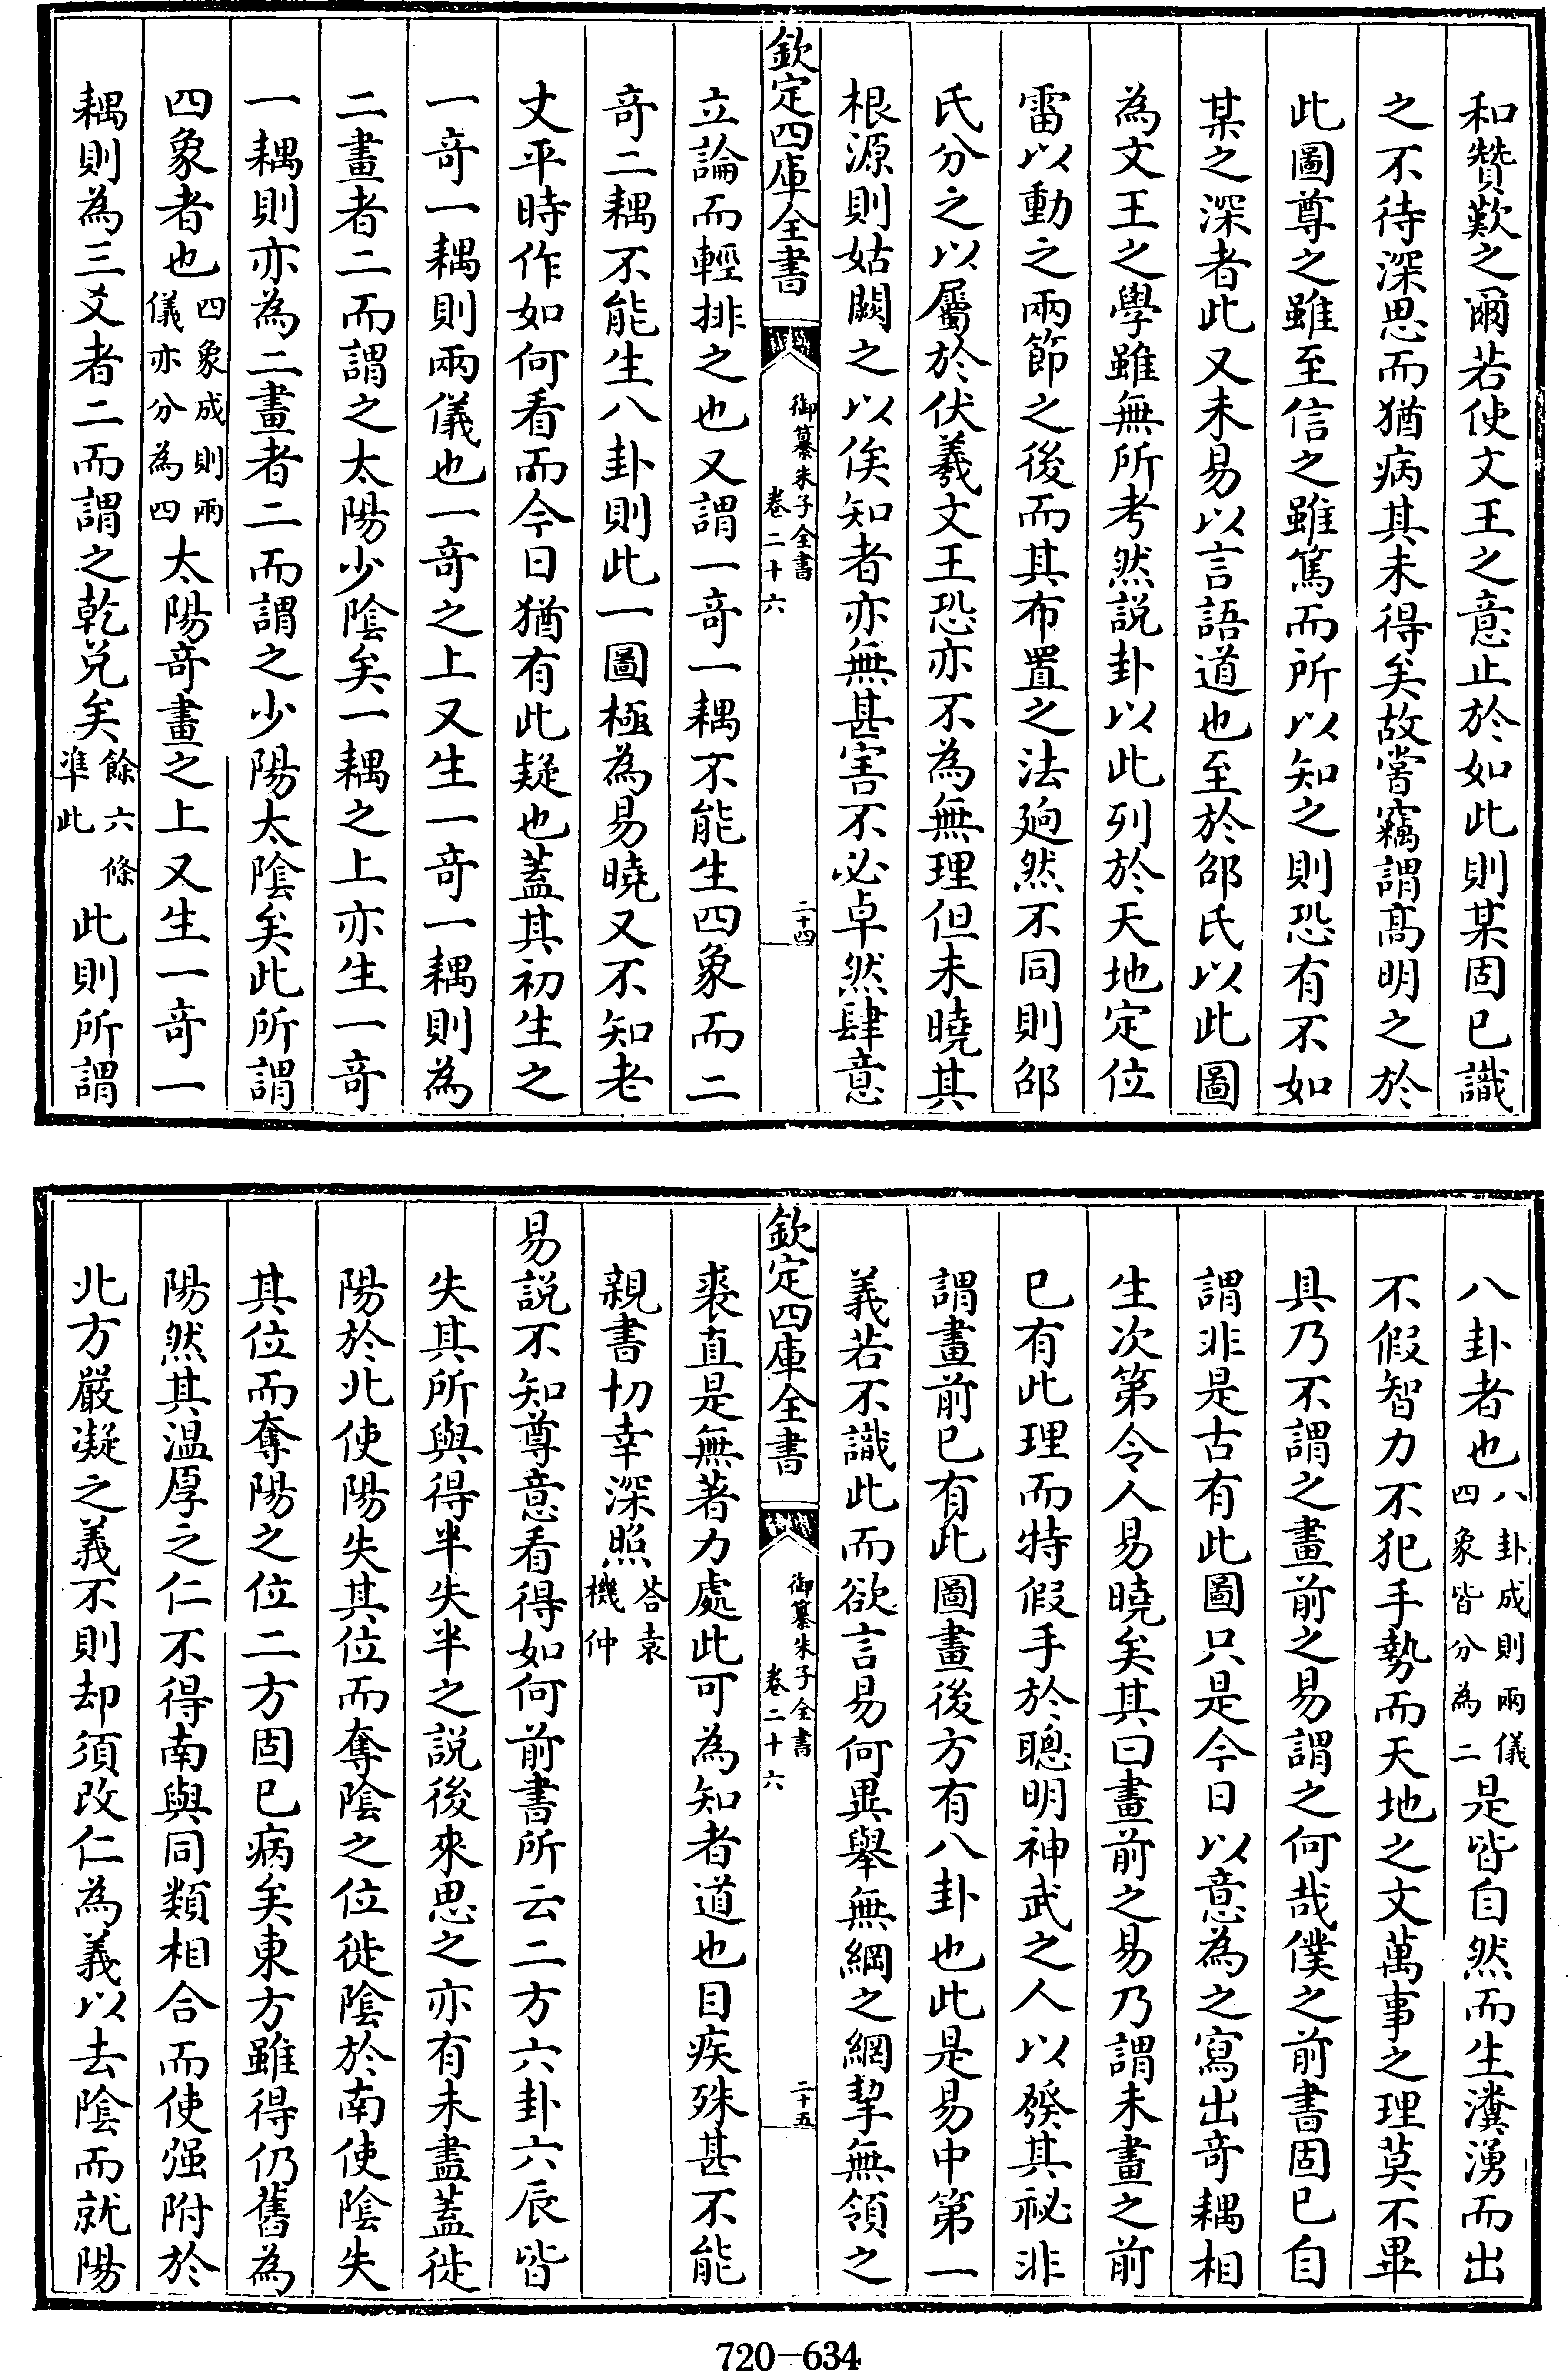 和贊歎之爾若使文王之意止於如此則某固已識
之不待深思而猶病其未得矣故嘗竊謂髙明之於
此圖尊之雖至信之雖篤而所以知之則恐有不如
某之深者此又未易以言語道也至於邵氏以此圖
為文王之學雖無所考然説卦以此列於天地定位
雷以動之兩節之後而其布置之法廹然不同則邵
氏分之以屬於伏羲文王恐亦不為無理但未曉其
根源則姑闕之以俟知者亦無甚害不必卓然肆意
欽定四庫全書
御纂朱子全書
卷二十六
二十四
立論而輕排之也又謂一奇一耦不能生四象而二
奇二耦不能生八卦則此一圖極為易曉又不知老
丈平時作如何看而今日猶有此疑也蓋其初生之
一奇一耦則兩儀也一奇之上又生一奇一耦則為
二畫者二而謂之太陽少陰矣一耦之上亦生一奇
一耦則亦為二畫者二而謂之少陽太陰矣此所謂
四象者也四象成則兩儀亦分為四太陽奇畫之上又生一奇一
耦則為三爻者二而謂之乾兌矣餘六條準此此則所謂
八卦者也八卦成則兩儀四象皆分為二是皆自然而生瀵湧而出
不假智力不犯手勢而天地之文萬事之理莫不畢
具乃不謂之畫前之易謂之何哉僕之前書固已自
謂非是古有此圖只是今日以意為之寫出奇耦相
生次第令人易曉矣其曰畫前之易乃謂未畫之前
已有此理而特假手於聰明神武之人以發其祕非
謂畫前已有此圖畫後方有八卦也此是易中第一
義若不識此而欲言易何異舉無綱之網挈無領之
欽定四庫全書
御纂朱子全書
卷二十六
二十五
裘直是無著力處此可為知者道也目疾殊甚不能
親書切幸深照荅袁機仲
易説不知尊意看得如何前書所云二方六卦六辰皆
失其所與得半失半之説後來思之亦有未盡蓋徙
陽於北使陽失其位而奪陰之位徙陰於南使陰失
其位而奪陽之位二方固已病矣東方雖得仍舊為
陽然其温厚之仁不得南與同類相合而使强附於
北方嚴凝之義不則却須改仁為義以去陰而就陽
720-634